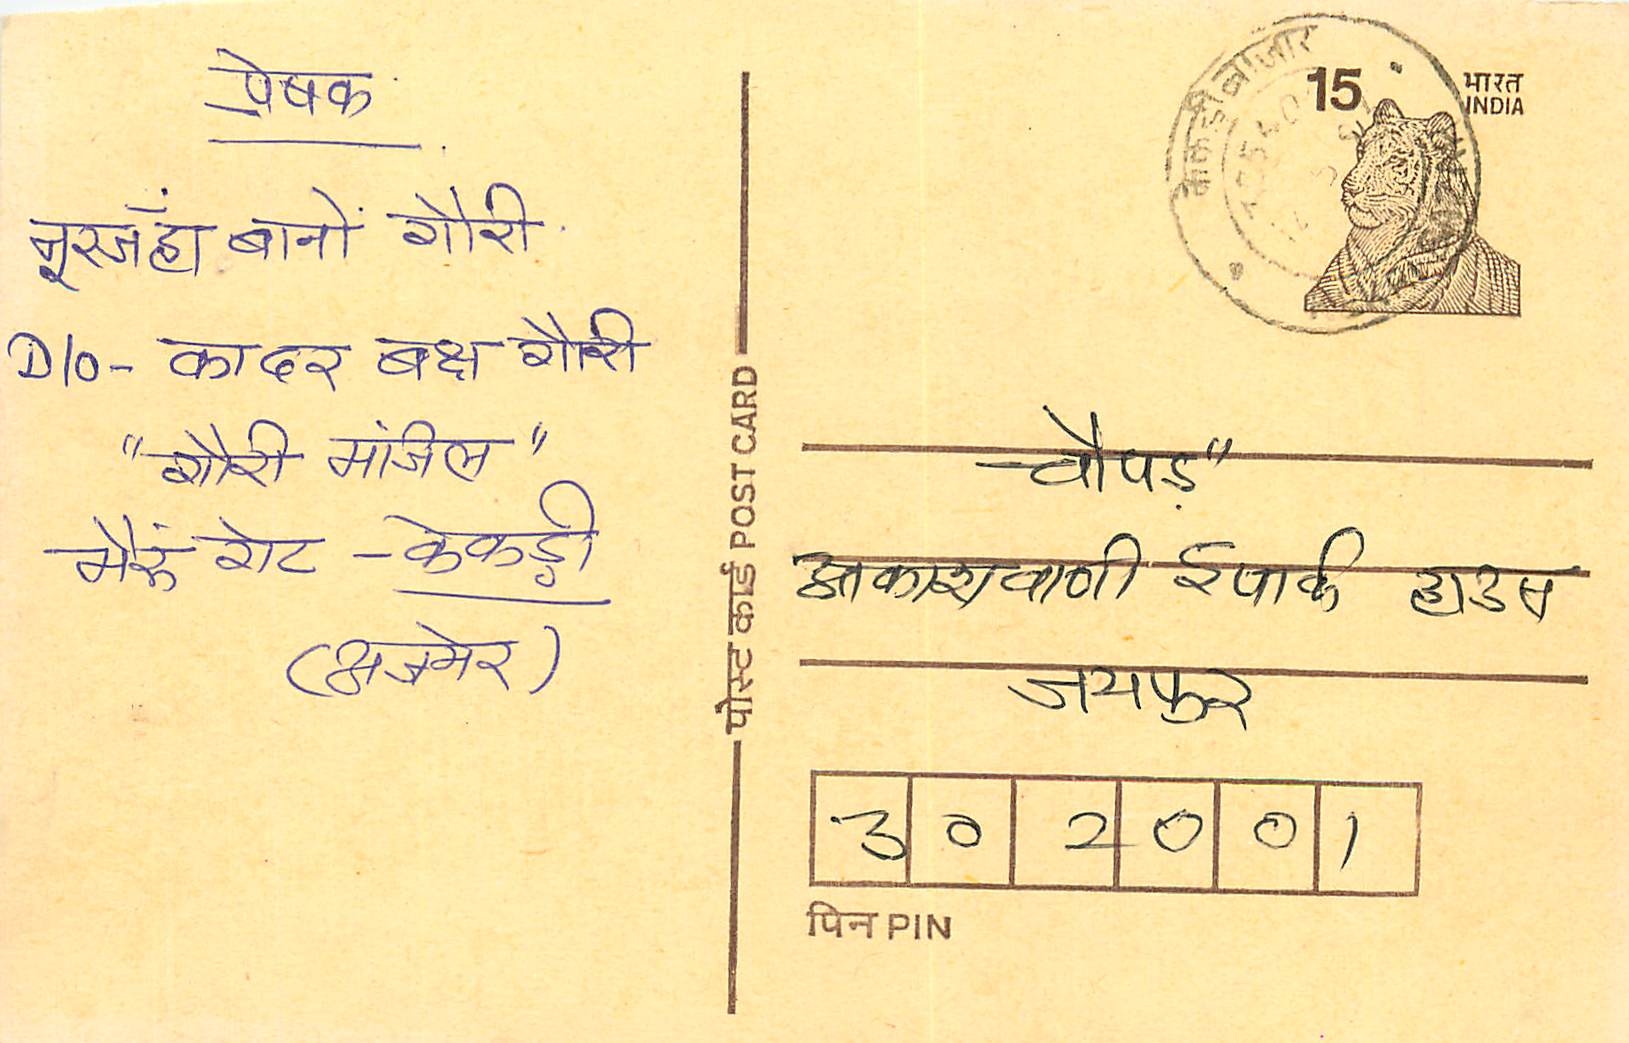 प्रेषक
नूरजँहा बानों गौरी
D/o- कादर बक्ष गौरी
"गौरी मंजिल"
भैरूं गेट - केकड़ी
(अजमेर)
पोस्ट कार्ड POST CARD
केकड़ी बाजार
15
भारत
INDIA
चौपड़"
आकाशवाणी ईपार्क हाउस
जयपुर
302001
पिन PIN